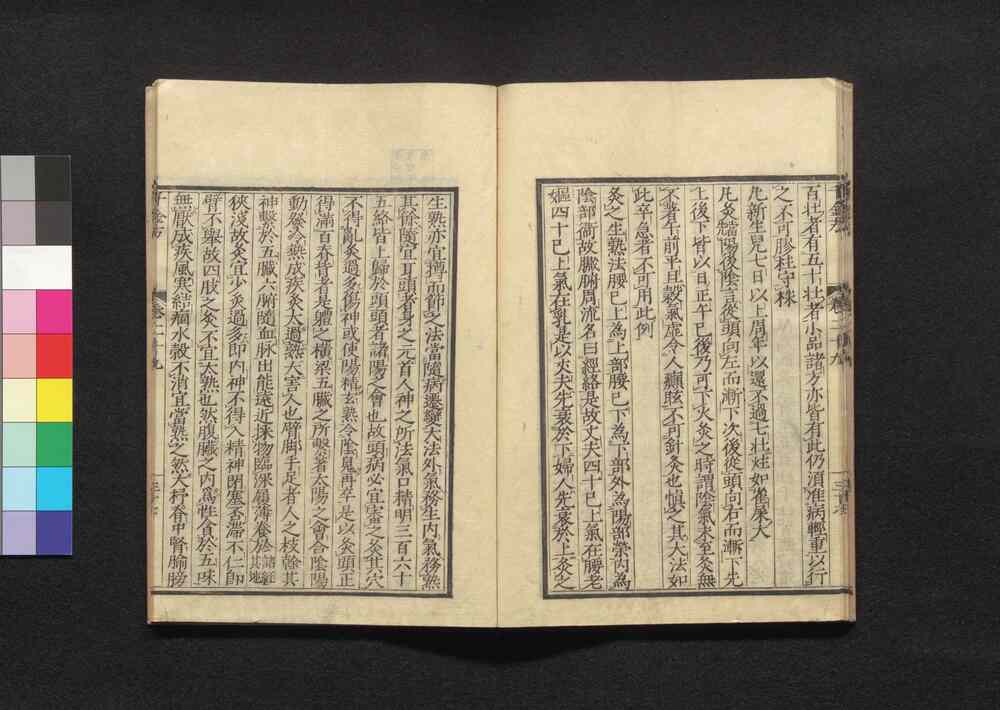 百壯者有五十壯者小品諸方亦皆有此仍須准病輕重以行
之不可膠柱守株
凡新生兒七日以上周年以還不過七壯炷如雀屎大
凡灸當先陽後陰言從頭向左而漸下次後從頭向右而漸下先
上後下皆以日正午已後乃可下火灸之時謂陰氣未至灸無
不著午前平旦穀氣虛令人癲眩不可針灸也慎之其大法如
此卒急者不可用此例
灸之生熟法腰已上為上部腰已下為下部外為陽部榮內為
陰部衛故臟腑周流名曰經絡是故丈夫四十已上氣在腰老
嫗四十已上氣在乳是以丈夫先衰於下婦人先衰於上灸之
生熟亦宜撙而節之法當隨病遷變大法外氣務生內氣務熟
其餘隨宜耳頭者身之元首人神之所法氣口精明三百六十
五絡皆上歸於頭頭者諸陽之會也故頭病必宜審之灸其穴
不得亂灸過多傷神或使陽精玄熟令陰魄再卒是以灸頭正
得滿百脊背者是體之橫梁五臟之所繫著太陽之會合陰陽
動發冷熱成疾灸大過熟大害人也臂脚手足者人之枝幹其
神繫於五臟六腑隨血脉出能遠近採物臨深履薄養於諸經其地
狹淺故灸宜少灸過多即內神不得入精神閉塞否滯不仁即
臂不舉故四肢之灸不宜太熟也然腹臟之內為性貪於五味
無厭成疾風寒結痼水穀不消宜當熟之然大杼脊中腎腧膀
卷二十九